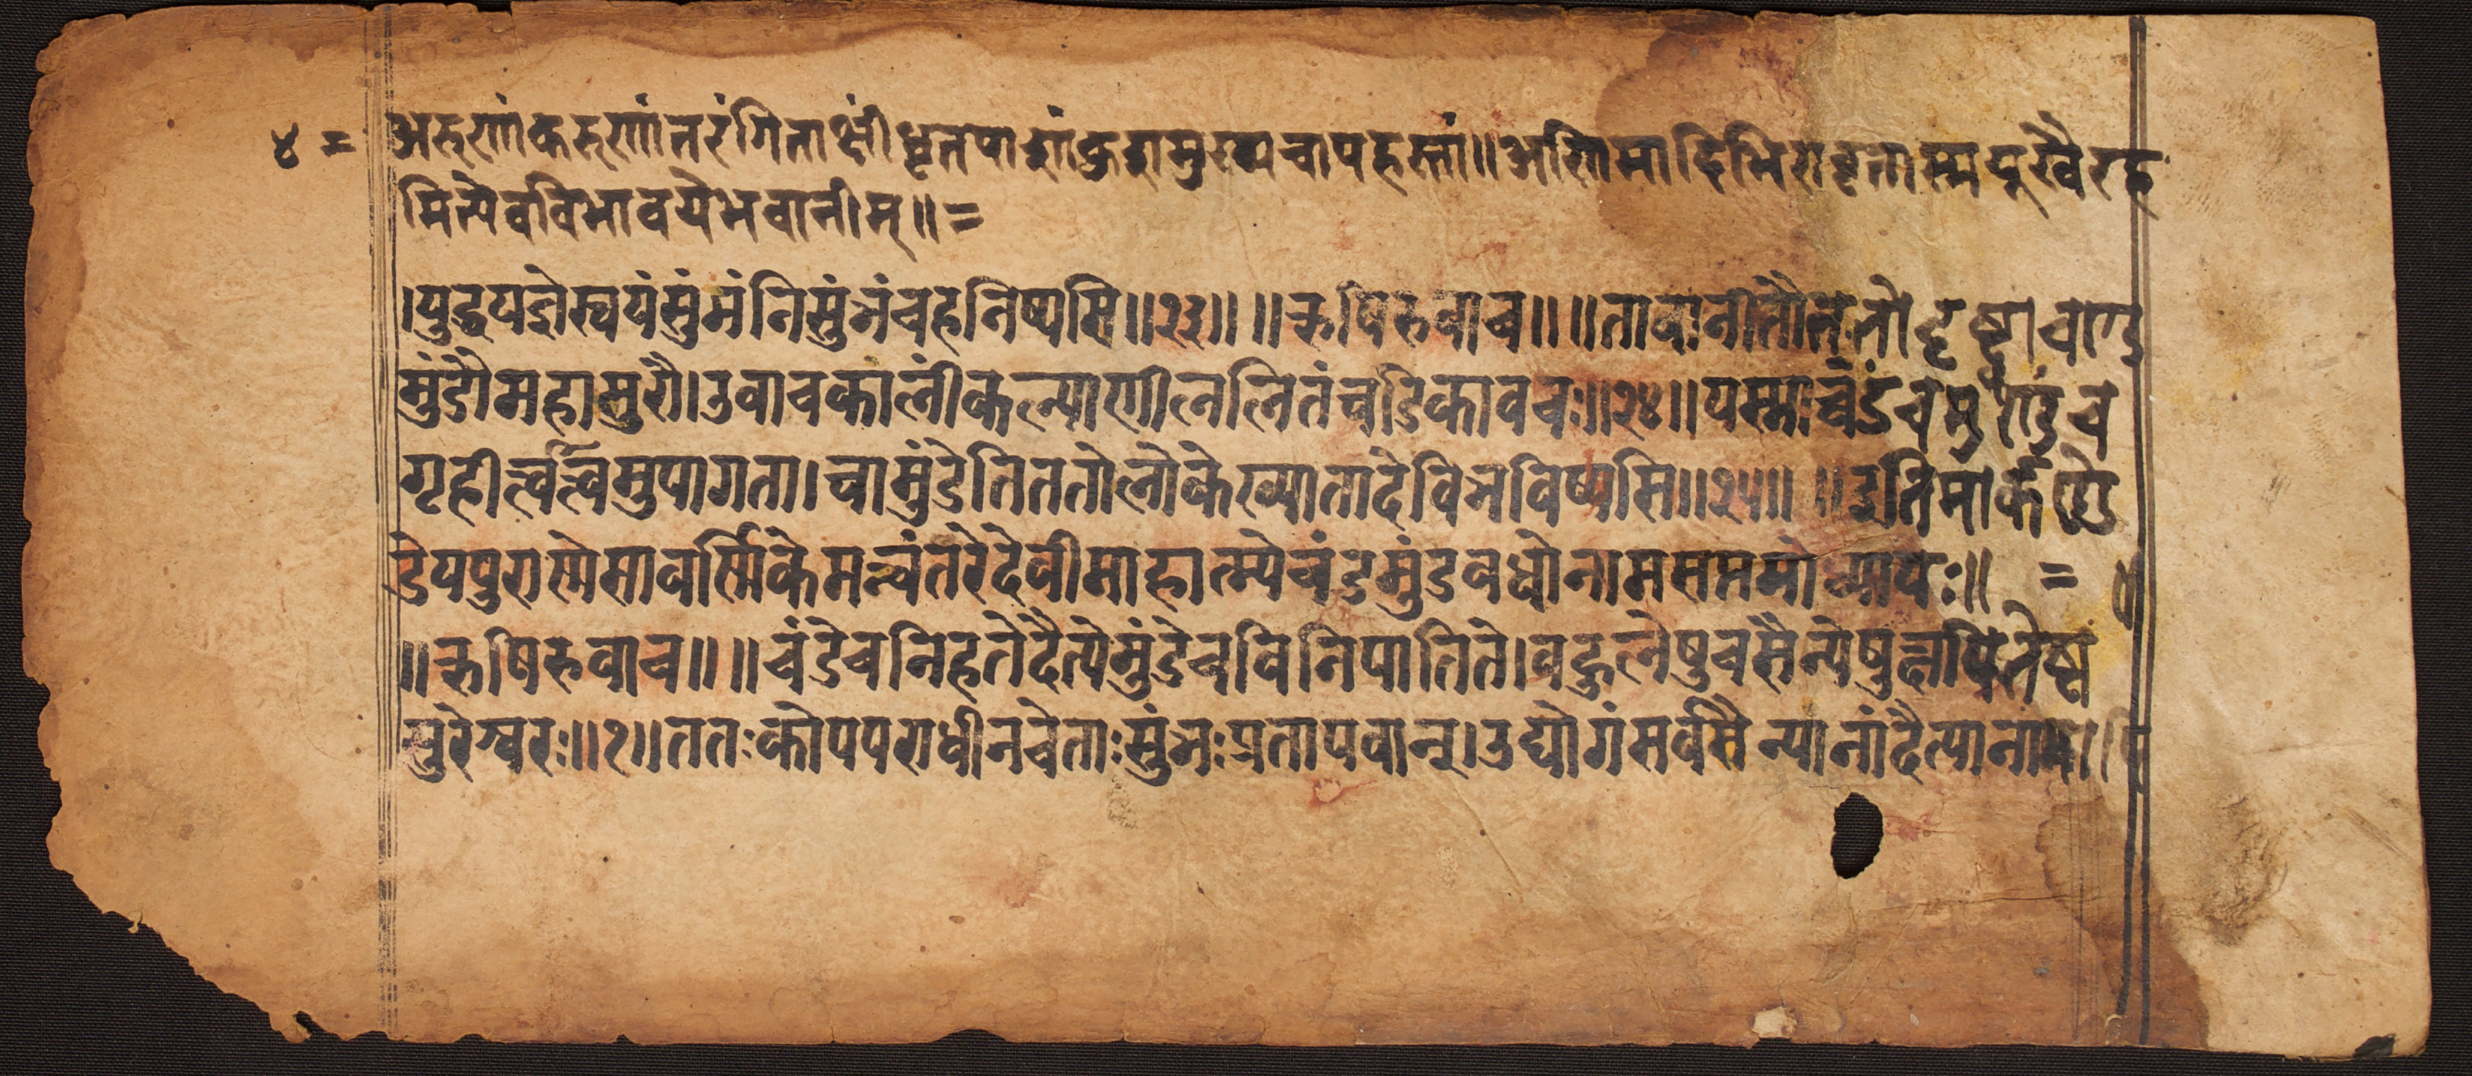 ४ = अरुणांकरुणातरंगिताक्षींधृतपाशांकुशपुष्पचापहस्तां॥अणिमादिभिरावृताम्मयूखैरह
मित्येवविभावयेभवानीम्॥=
।युद्धयज्ञेस्वयंसुंभंनिसुंभंचहनिष्यसि॥२३॥ ॥ऋषिरुवाच॥ ॥तावानीतौततोदृष्ट्वाचण्ड
मुंडौमहासुरौ।उवाचकालींकल्याणीललितंचंडिकावचः॥२४॥यस्माच्चंडंचमुण्डंच
गृहीत्वात्वमुपागता।चामुंडेतिततोलोकेख्यातादेविभविष्यसि॥२५॥ ॥इतिमार्कण्डे
डेयपुराणेसावर्णिकेमन्वंतरेदेवीमाहात्म्येचंडमुंडवधोनामसप्तमोध्यायः॥ =
॥ऋषिरुवाच॥ ॥चंडेचनिहतेदैत्येमुंडेचविनिपातिते।बहुलेषुचसैन्येषुक्षयितेष्व
सुरेश्वरः॥१॥ततःकोपपराधीनचेताःसुंभःप्रतापवान्।उद्योगंसर्वसैन्यानांदैत्यानामा